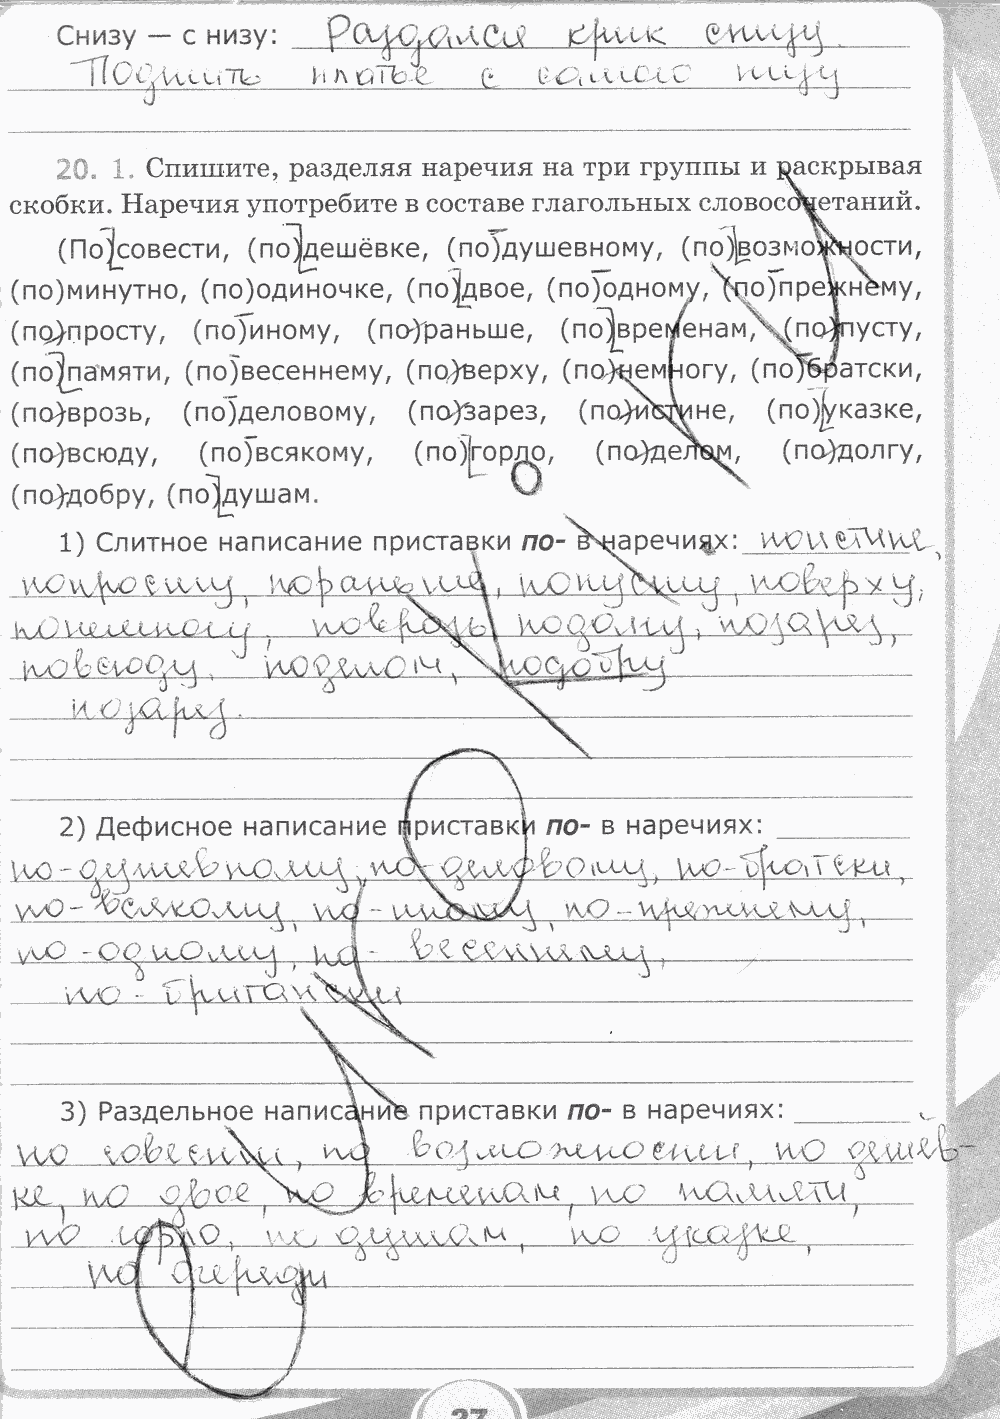 Снизу — с низу: Раздался крик снизу.
Подшить платье с самого низу
20. 1. Спишите, разделяя наречия на три группы и раскрывая
скобки. Наречия употребите в составе глагольных словосочетаний.
(По)совести, (по)дешёвке, (по)душевному, (по)возможности,
(по)минутно, (по)одиночке, (по)двое, (по)одному, (по)прежнему,
(по)просту, (по)иному, (по)раньше, (по)временам, (по)пусту,
(по)памяти, (по)весеннему, (по)верху, (по)немногу, (по)братски,
(по)врозь, (по)деловому, (по)зарез, (по)истине, (по)указке,
(по)всюду, (по)всякому, (по)горло, (по)делом, (по)долгу,
(по)добру, (по)душам.
1) Слитное написание приставки по- в наречиях: поистине,
попросту, пораньше, попусту, поверху,
понемногу, поврозь, подолгу, позарез,
повсюду, поделом, подобру
позарез.
2) Дефисное написание приставки по- в наречиях:
по-душевному, по-деловому, по-братски,
по-всякому, по-иному, по-прежнему,
по-одному, по-весеннему,
по-британски
3) Раздельное написание приставки по- в наречиях:
по совести, по возможности, по дешёв-
ке, по двое, по временам, по памяти,
по горло, по душам, по указке,
по очереди
27